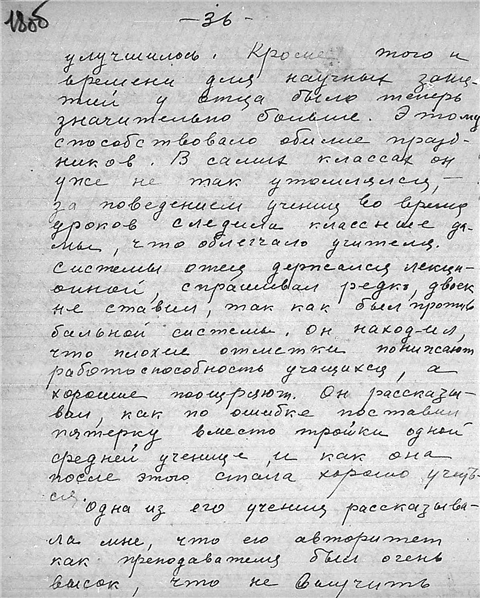 1886
- 36 -
улучшилось. Кроме того и
времени для научных заня-
тий у отца было теперь
значительно больше. Этому
способствовало обилие празд-
ников. В самих классах он
уже не так утомлялся, —
за поведением учениц во время
уроков следили классные да-
мы, что облегчало учителя.
Системы отец держался лекци-
онной, спрашивал редко, двоек
не ставил, так как был против
бальной системы. Он находил,
что плохие отметки понижают
работоспособность учащихся, а
хорошие поощряют. Он рассказы-
вал, как по ошибке поставил
пятерку вместо тройки одной
средней ученице и как она
после этого стала хорошо учить-
ся.
Одна из его учениц рассказыва-
ла мне, что его авторитет
как преподавателя был очень
высок, что не выучить